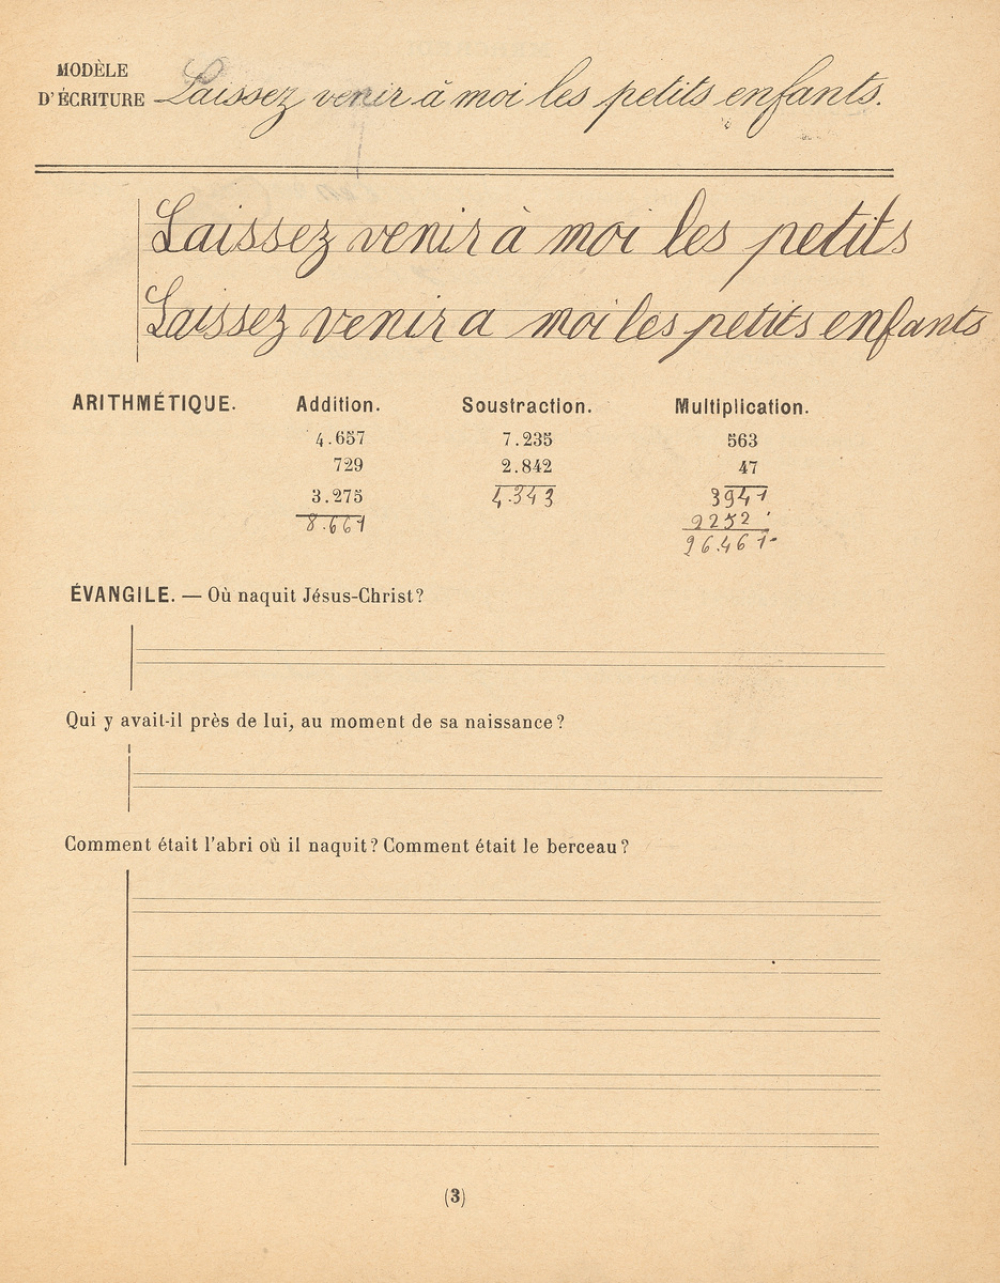 MODÈLE
D'ÉCRITURE Laissez venir à moi les petits enfants.
Laissez venir à moi les petits
Laissez venir a moi les petits enfants
ARITHMÉTIQUE. Addition. Soustraction. Multiplication.
4.657 7.235 563
729 2.842 47
3.275 4.343 3941
8.661 2252
26.461
ÉVANGILE. — Où naquit Jésus-Christ?
Qui y avait-il près de lui, au moment de sa naissance?
Comment était l'abri où il naquit? Comment était le berceau?
(3)